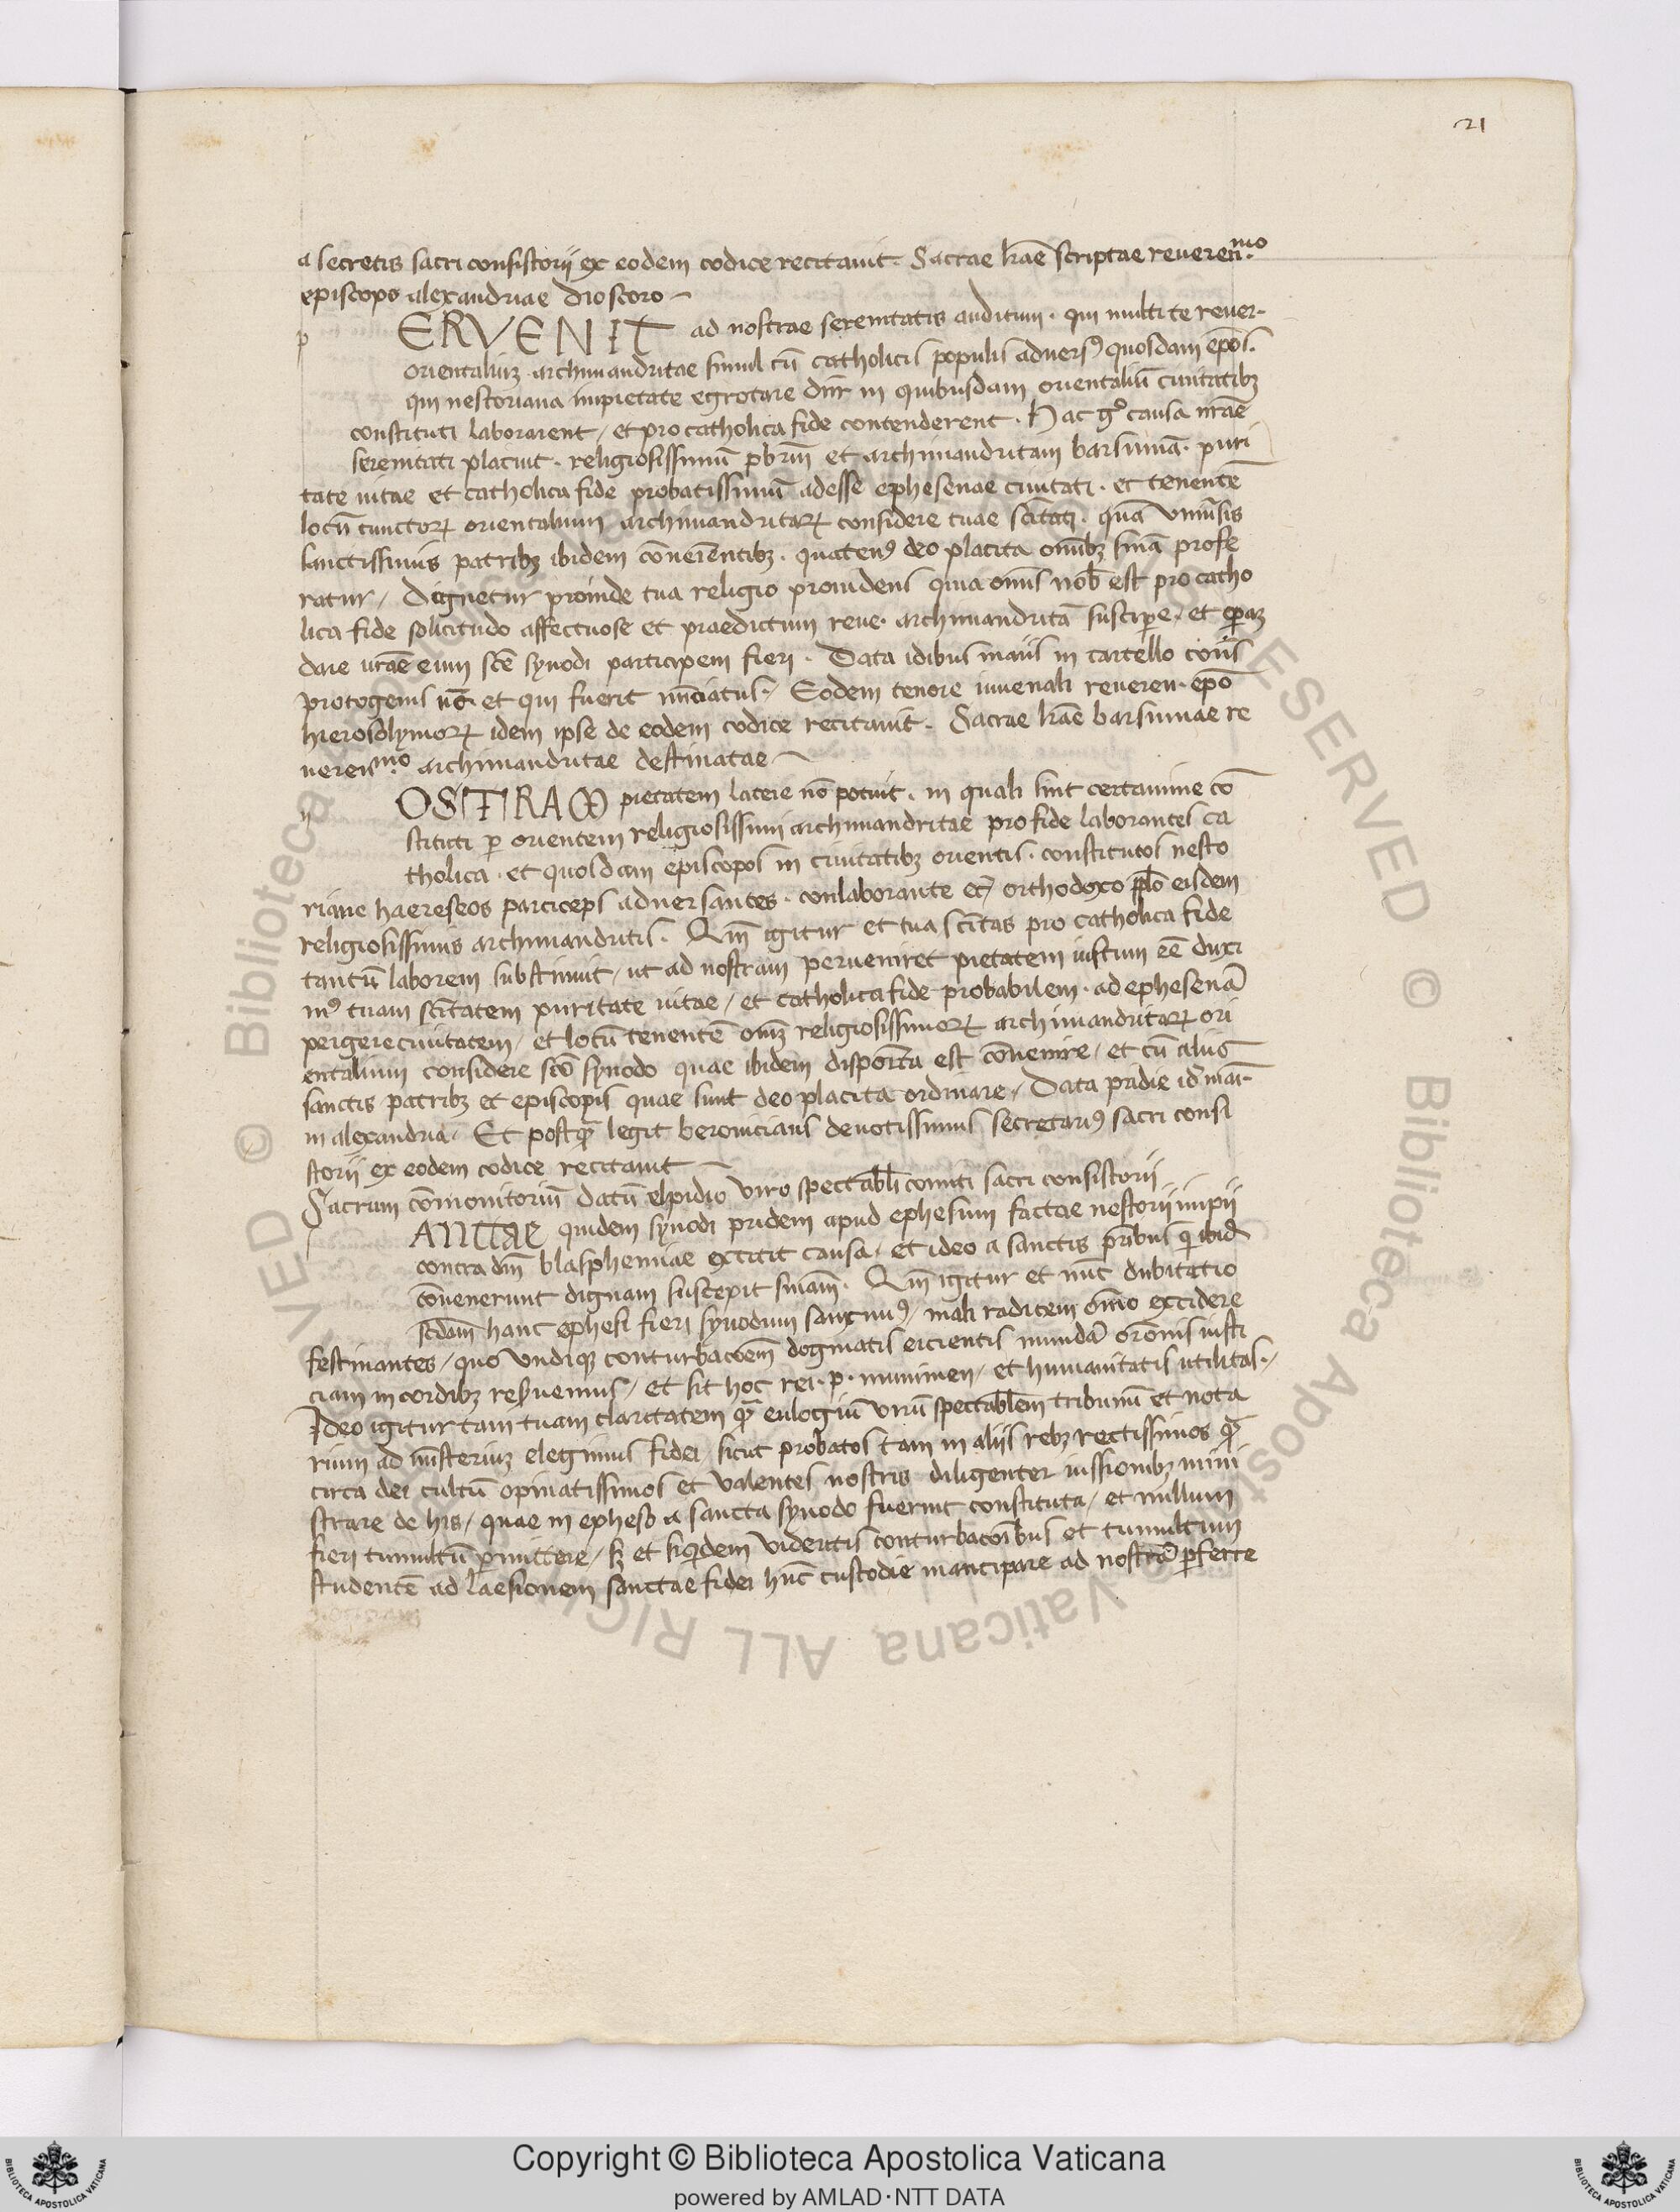 21
a secretis sacri consistorii ex eodem codice recitauit. Sacrae lr̄ae scriptae reueren.mo
episcopo alexandriae dioscoro
p ERVENIT ad nostrae serenitatis auditum. qui multi te reuer.
orientaliuꝫ archimandritae simul cū catholicis populis aduersꝰ quosdam ep̄os.
qui nestoriana impietate egrotare dn̄r in quibusdam orientaliū ciuitatibꝫ
constituti laborarent / et pro catholica fide contenderent. Hac gͦ causa nr̄ae
serenitati placuit. religiosissimū pb̄rm̄ et archimandritam barsumā. puri
tate uitae et catholica fide probatissimū adesse ephesenae ciuitati. et tenentē
locū cunctoꝝ orientalium archimandritaꝝ considere tuae sc̄itati. quā uniu̅sis
sanctissimis patribꝫ ibidem cōueientibꝫ. quatenꝰ deo placita om̄ibꝫ sn̄iā profe
ratur / Dignetur proinde tua religio prouidens quia om̄is nob̄ est pro catho
lica fide solicitudo affectuose et praedictum reue. archimandritā suscip̱e / et op̱aꝫ
dare ur̄ae eum sc̄e synodi participem fieri. Data idibus maiis in cartello cōns
protogenis no᷒. et qui fuerit nūciatus / Eodem tenore iuuenali reueren. ep̄o
hierosolymoꝝ idem ipse de eodem codice recitauit. Sacrae lr̄ae barsumae re
ueren.mo archimandritae destinatae
n OSTRAM pietatem latere nō potuit. in quali sint certamine cō
stituti p̱ orientem religiosissimi archimandritae pro fide laborantes ca
tholica. et quosdam episcopos in ciuitatibꝫ orientis. constitutos nesto
riane haereseos particeps aduersantes. conlaborante et orthodoxo pl̄o eisdem
religiosissimis archimandritis. Qm̄ igitur et tua sc̄itas pro catholica fide
tantū laborem substinuit / ut ad nostram perueniret pietatem iustum eē duxi
mꝰ tuam sc̄itatem puritate uitae / et catholica fide probabilem. ad ephesenā
pergere ciuitatem / et locū tenentē om̄iꝫ religiosissimoꝝ archimandritaꝝ ori
entalium considere sc̄o synodo quae ibidem disposita est cōuenire / et cū aliis
sanctis patribꝫ et episcopis quae sunt deo placita ordinare / Data pridie id̄ mai.
in alexandria. Et postꝙ̄ legit beronicians deuotissimus secretariꝰ sacri consi
storii ex eodem codice recitauit
Sacrum cōmonitoriū datū elpidio uiro spectabli comiti sacri consistorii
s ANTAE quidem synodi pridem apud ephesum factae nestorii impii
contra dm̄ blasphemiae extitit causa / et ideo a sanctis pr̄ibus q̄ ibid̄
cōuenerunt dignam suscepit sn̄iam. Qm̄ igitur et nūc dubitatio
sc̄dam̄ hanc ephesi fieri synodum sanximꝰ / mali radicem om̄o excidere
festinantes / quo undiqꝫ conturbac̄oem dogmatis eicientis mundā orōnis iusti
ciam in cordibꝫ reſuemus / et sit hoc rei. p. munimen / et humanitatis utilitas. /
Ideo igitur tam tuam claritatem ꝙ̄ eulogiū uirū spectabl̄em tribunū et nota
rium ad mīsteriuꝫ elegimus fidei / sicut probatos tam in aliis rebꝫ rectissimos ꝙ̄
circa dei cultū opinatissimos et ualentes nostris diligenter iussionibꝫ mini
strare de his / quae in epheso a sancta synodo fuerint constituta / et nullum
fieri tumultū p̱mittere / sꝫ et siq̱dem uideritis conturbac̄oibus et tumultum
studentē ad laesionem sanctae fidei hūc custodie mancipare ad nostrā p̱ferre